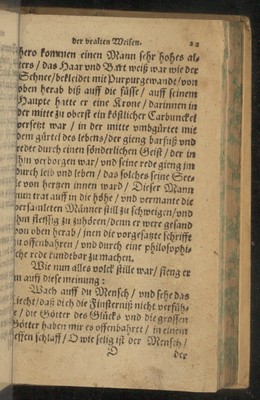 der vralten Weisen. 22
hero kommen einen Mann sehr hohes al-
ters / das Haar und Bart weiß war wie der
Schnee / bekleidet mit Purpurgewande / von
oben herab biß auff die füsse / auff seinem
Haupte hatte er eine Krone / darinnen in
der mitte zu oberst ein köstlicher Carbunckel
versetzt war / in der mitte vmbgürtet mit
dem gürtel des lebens / der gieng barfuß und
redte durch einen sonderlichen Geist / der in
ihn verborgen war / und seine rede gieng im
durch leib und leben / das solches seine See-
le von hertzen innen ward / Dieser Mann
nun trat auff in die höhe / und vermante die
versamleten Männer still zu schweigen / und
ihn fleissig zu zuhören / denn er were gesand
von oben herab / jnen die vorgesante schrifft
zu offenbahren / und durch eine philosophi-
sche rede kundtbar zu machen.
Wie nun alles volck stille war / fieng er
an auff diese meinung:
Wach auff du Mensch / und sehe das
Liecht / daß dich die Finsterniß nicht verfüh-
re / die Götter des Glücks und die grossen
Götter haben mir es offenbahret / in einem
tieffen schlaff / O wie selig ist der Mensch /
D der